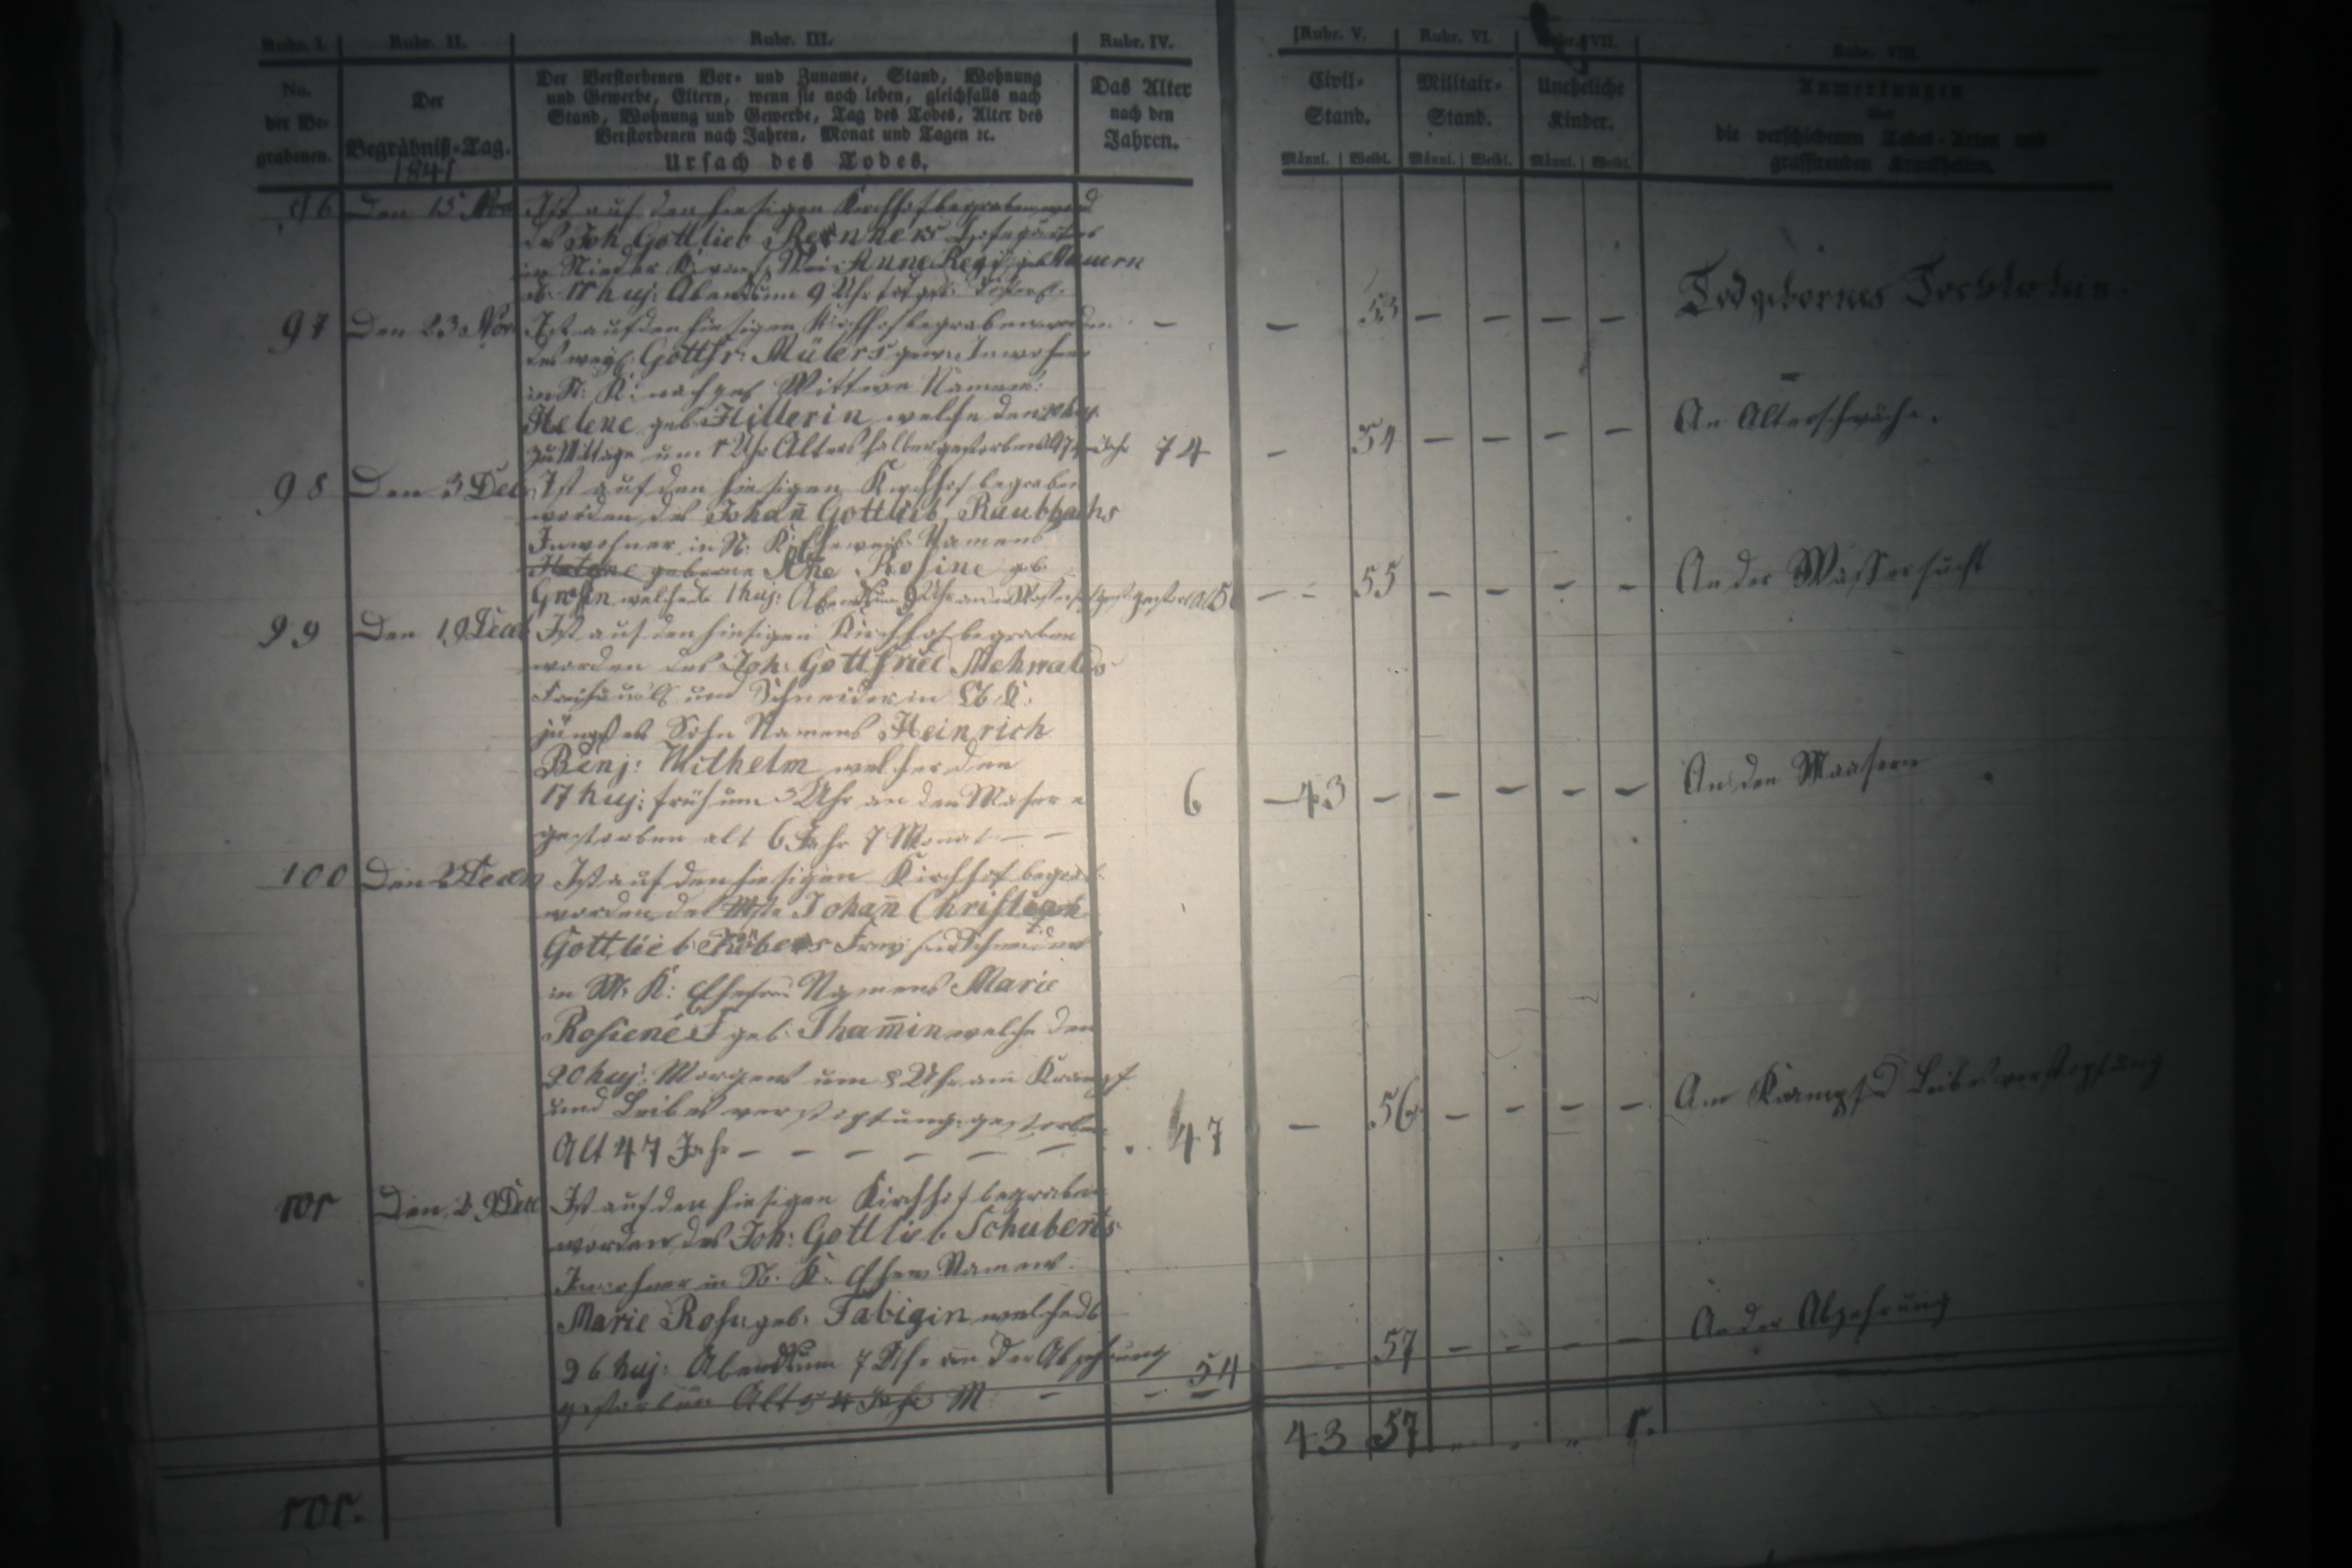 Rubr. I. Rubr. II. Rubr. III. Rubr. IV. Rubr. V. Rubr. VI. Rubr. VII. Rubr. VIII.
No. der Be- grabenen.
Der Begräbniß-Tag. 1841
Der Verstorbenen Vor- und Zuname, Stand, Wohnung
und Gewerbe, Eltern, wenn sie noch leben, gleichfalls nach
Stand, Wohnung und Gewerbe, Tag des Todes, Alter des
Verstorbenen nach Jahren, Monat und Tagen ꝛc.
Ursach des Todes.
Das Alter nach den Jahren.
Civil- Stand.
Militair- Stand.
Uneheliche Kinder.
Männl. Weibl. Männl. Weibl. Männl. Weibl.
Anmerkungen
über
die verschiedenen Todes-Arten und
grassirenden Krankheiten.
96 Den 15 Nov Ist auf den hiesigen Kirchhof begraben
des Joh Gottlieb
in Nieder Anne
huj: Abends um 9 Uhr
53 Todgebornes Töchterlein
97 Den 23 Nov Ist auf den hiesigen Kirchhof begraben worden
des weyl: Gottfr: Mülers gew: Inwohner
in N: K: nachgel Wittwe Namens:
Helene geb: Hillerin welche den huj.
zu Mittage um 1 Uhr Alters halber gestorben alt 74 Jahr 74 - 54 An Alterschwäche.
98 Den 3 Dec Ist auf den hiesigen Kirchhof begraben
worden des Johan̄ Gottlieb Raubbachs
Inwohner in N: K: Eheweib Namens
geborne Rosine geb.
welche d. 1 huj: Abends um 9 Uhr an der Wassersucht
55 An der Wassersucht
99 Den 19 Decb Ist auf den hiesigen Kirchhof begraben
worden des Joh: Gottfried Mehwalds
Freihäusl und Schneider in K:
jüngstes Sohn Namens Heinrich
Benj: Wilhelm welcher den
17 huj: früh um 3 Uhr an den Masern 6 - 43 - An den Maasern
gestorben alt 6 Jahr 7 Monat
100 Den Decem Ist auf den hiesigen Kirchhof begrab
worden des Johan̄ Christian
Gottlieb
in K: Ehefrau Namens Marie
Rosiene geb: Tham̄in welche den
20 huj: Morgens um 8 Uhr am Krampf
und Leibesverstopfung gestorben 56 Am Krampf Leibesverstopfung
Alt 47 Jahr 47
101 Den 29 Dec Ist auf den hiesigen Kirchhof begraben
worden des Joh: Gottlieb Schuberts
Inwohner in N. K. Ehew Namens
Marie Rosn: geb: Fabigin welche d.
26 huj: Abends um 7 Uhr an der Abzehrung 57 An der Abzehrung
gestorben Alt 54 Jahr 54
43 57 1.
101.